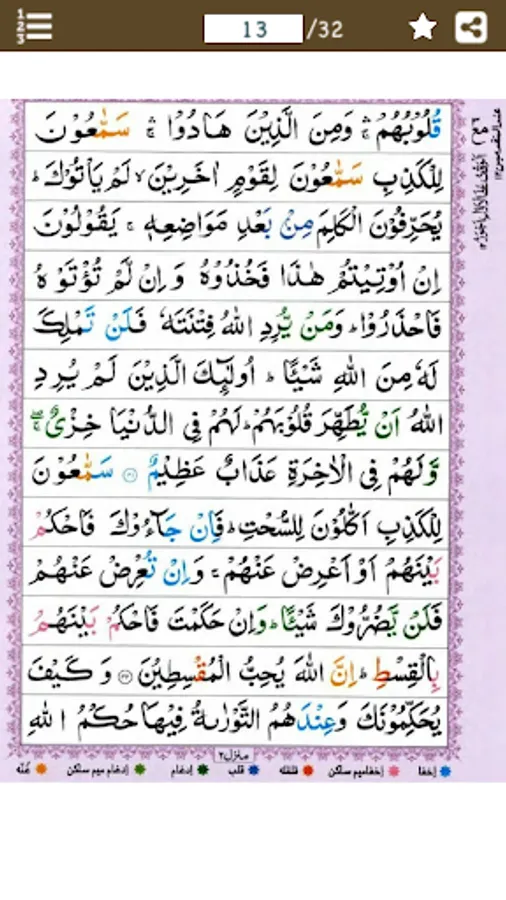 13 /32
قُلُوْبُهُمْ ۛۚ وَمِنَ الَّذِيْنَ هَادُوْا ۛۚ سَمّٰعُوْنَ
لِلْكَذِبِ سَمّٰعُوْنَ لِقَوْمٍ اٰخَرِيْنَ ۙ لَمْ يَاْتُوْكَ ؕ
يُحَرِّفُوْنَ الْكَلِمَ مِنْۢ بَعْدِ مَوَاضِعِهٖ ۚ يَقُوْلُوْنَ
اِنْ اُوْتِيْتُمْ هٰذَا فَخُذُوْهُ وَاِنْ لَّمْ تُؤْتَوْهُ
فَاحْذَرُوْا ؕ وَمَنْ يُّرِدِ اللّٰهُ فِتْنَتَهٗ فَلَنْ تَمْلِكَ
لَهٗ مِنَ اللّٰهِ شَيْـًٔا ؕ اُولٰٓئِكَ الَّذِيْنَ لَمْ يُرِدِ
اللّٰهُ اَنْ يُّطَهِّرَ قُلُوْبَهُمْ ؕ لَهُمْ فِي الدُّنْيَا خِزْيٌ ۖۚ
وَّلَهُمْ فِي الْاٰخِرَةِ عَذَابٌ عَظِيْمٌ ۝ سَمّٰعُوْنَ
لِلْكَذِبِ اَكّٰلُوْنَ لِلسُّحْتِ ؕ فَاِنْ جَآءُوْكَ فَاحْكُمْ
بَيْنَهُمْ اَوْ اَعْرِضْ عَنْهُمْ ۚ وَاِنْ تُعْرِضْ عَنْهُمْ
فَلَنْ يَّضُرُّوْكَ شَيْـًٔا ؕ وَاِنْ حَكَمْتَ فَاحْكُمْ بَيْنَهُمْ
بِالْقِسْطِ ؕ اِنَّ اللّٰهَ يُحِبُّ الْمُقْسِطِيْنَ ۝ وَكَيْفَ
يُحَكِّمُوْنَكَ وَعِنْدَهُمُ التَّوْرٰىةُ فِيْهَا حُكْمُ اللّٰهِ
منزل٢
إخفا إخفاميم ساكن قلقله قلب إدغام إدغام ميم ساكن غنّه